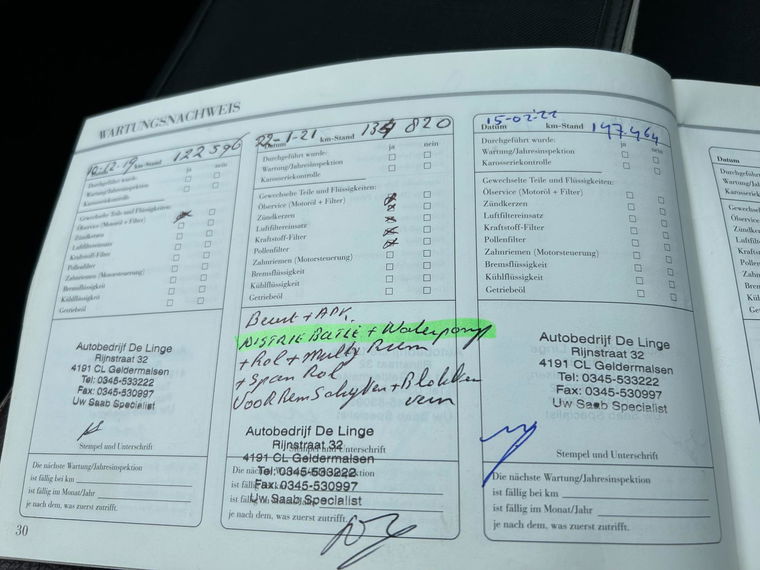 WARTUNGSNACHWEIS
12-12-19 km-Stand 122596
Durchgeführt wurde: ja nein
Wartung/Jahresinspektion
Karosseriekontrolle
Gewechselte Teile und Flüssigkeiten:
Ölservice (Motoröl + Filter)
Zündkerzen
Luftfiltereinsatz
Kraftstoff-Filter
Pollenfilter
Zahnriemen (Motorsteuerung)
Bremsflüssigkeit
Kühlflüssigkeit
Getriebeöl
Autobedrijf De Linge
Rijnstraat 32
4191 CL Geldermalsen
Tel: 0345-533222
Fax: 0345-530997
Uw Saab Specialist
Stempel und Unterschrift
Die nächste Wartung/Jahresinspektion
ist fällig bei km
ist fällig im Monat/Jahr
je nach dem, was zuerst zutrifft.
30
22-1-21 km-Stand 134 820
Datum
Durchgeführt wurde: ja nein
Wartung/Jahresinspektion
Karosseriekontrolle
Gewechselte Teile und Flüssigkeiten:
Ölservice (Motoröl + Filter)
Zündkerzen
Luftfiltereinsatz
Kraftstoff-Filter
Pollenfilter
Zahnriemen (Motorsteuerung)
Bremsflüssigkeit
Kühlflüssigkeit
Getriebeöl
Beurt + APK.
DISTRIE BUTIE + Waterpomp
+ Rol + Multy Riem
+ Span Rol
VooR Rem Schyven + Blokken
Autobedrijf De Linge
Rijnstraat 32
4191 CL Geldermalsen
Tel: 0345-533222
Fax: 0345-530997
Uw Saab Specialist
Die nächste
ist fällig
ist fällig
je nach dem, was zuerst zutrifft.
15-02-22
Datum km-Stand 147.464
Durchgeführt wurde: ja nein
Wartung/Jahresinspektion
Karosseriekontrolle
Gewechselte Teile und Flüssigkeiten:
Ölservice (Motoröl + Filter)
Zündkerzen
Luftfiltereinsatz
Kraftstoff-Filter
Pollenfilter
Zahnriemen (Motorsteuerung)
Bremsflüssigkeit
Kühlflüssigkeit
Getriebeöl
Autobedrijf De Linge
Rijnstraat 32
4191 CL Geldermalsen
Tel: 0345-533222
Fax: 0345-530997
Uw Saab Specialist
Stempel und Unterschrift
Die nächste Wartung/Jahresinspektion
ist fällig bei km
ist fällig im Monat/Jahr
je nach dem, was zuerst zutrifft.
Datum